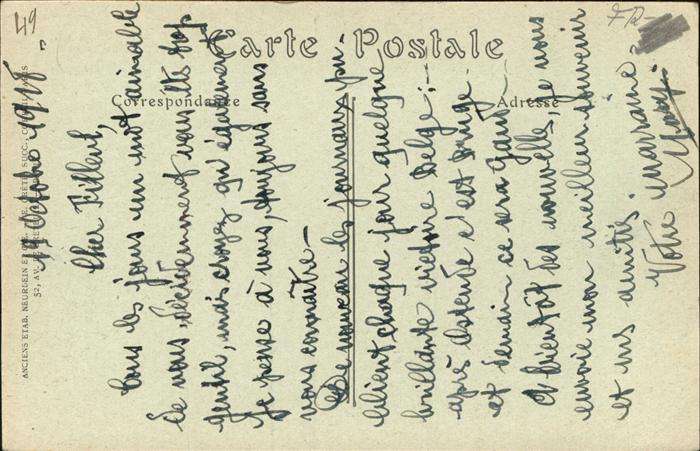 49
FR-
Carte Postale
Correspondance
Adresse
ANCIENS ETAB. NEURDEIN ET Cie
52, AV.
19 Octobre 1918.
Cher Filleul,
Tous les jours un mot aimable
de vous, décidemment vous êtes trop
gentil, mais croyez qu'également
je pense à vous, toujours sans
vous connaître -
De nouveau les journaux pu-
blient chaque jour quelque
brillante victoire belge :
après Ostende c'est Bruges
et demain ce sera Gand.
A bientôt des nouvelles, je vous
envoie mon meilleur souvenir
et mes amitiés.
Votre marraine